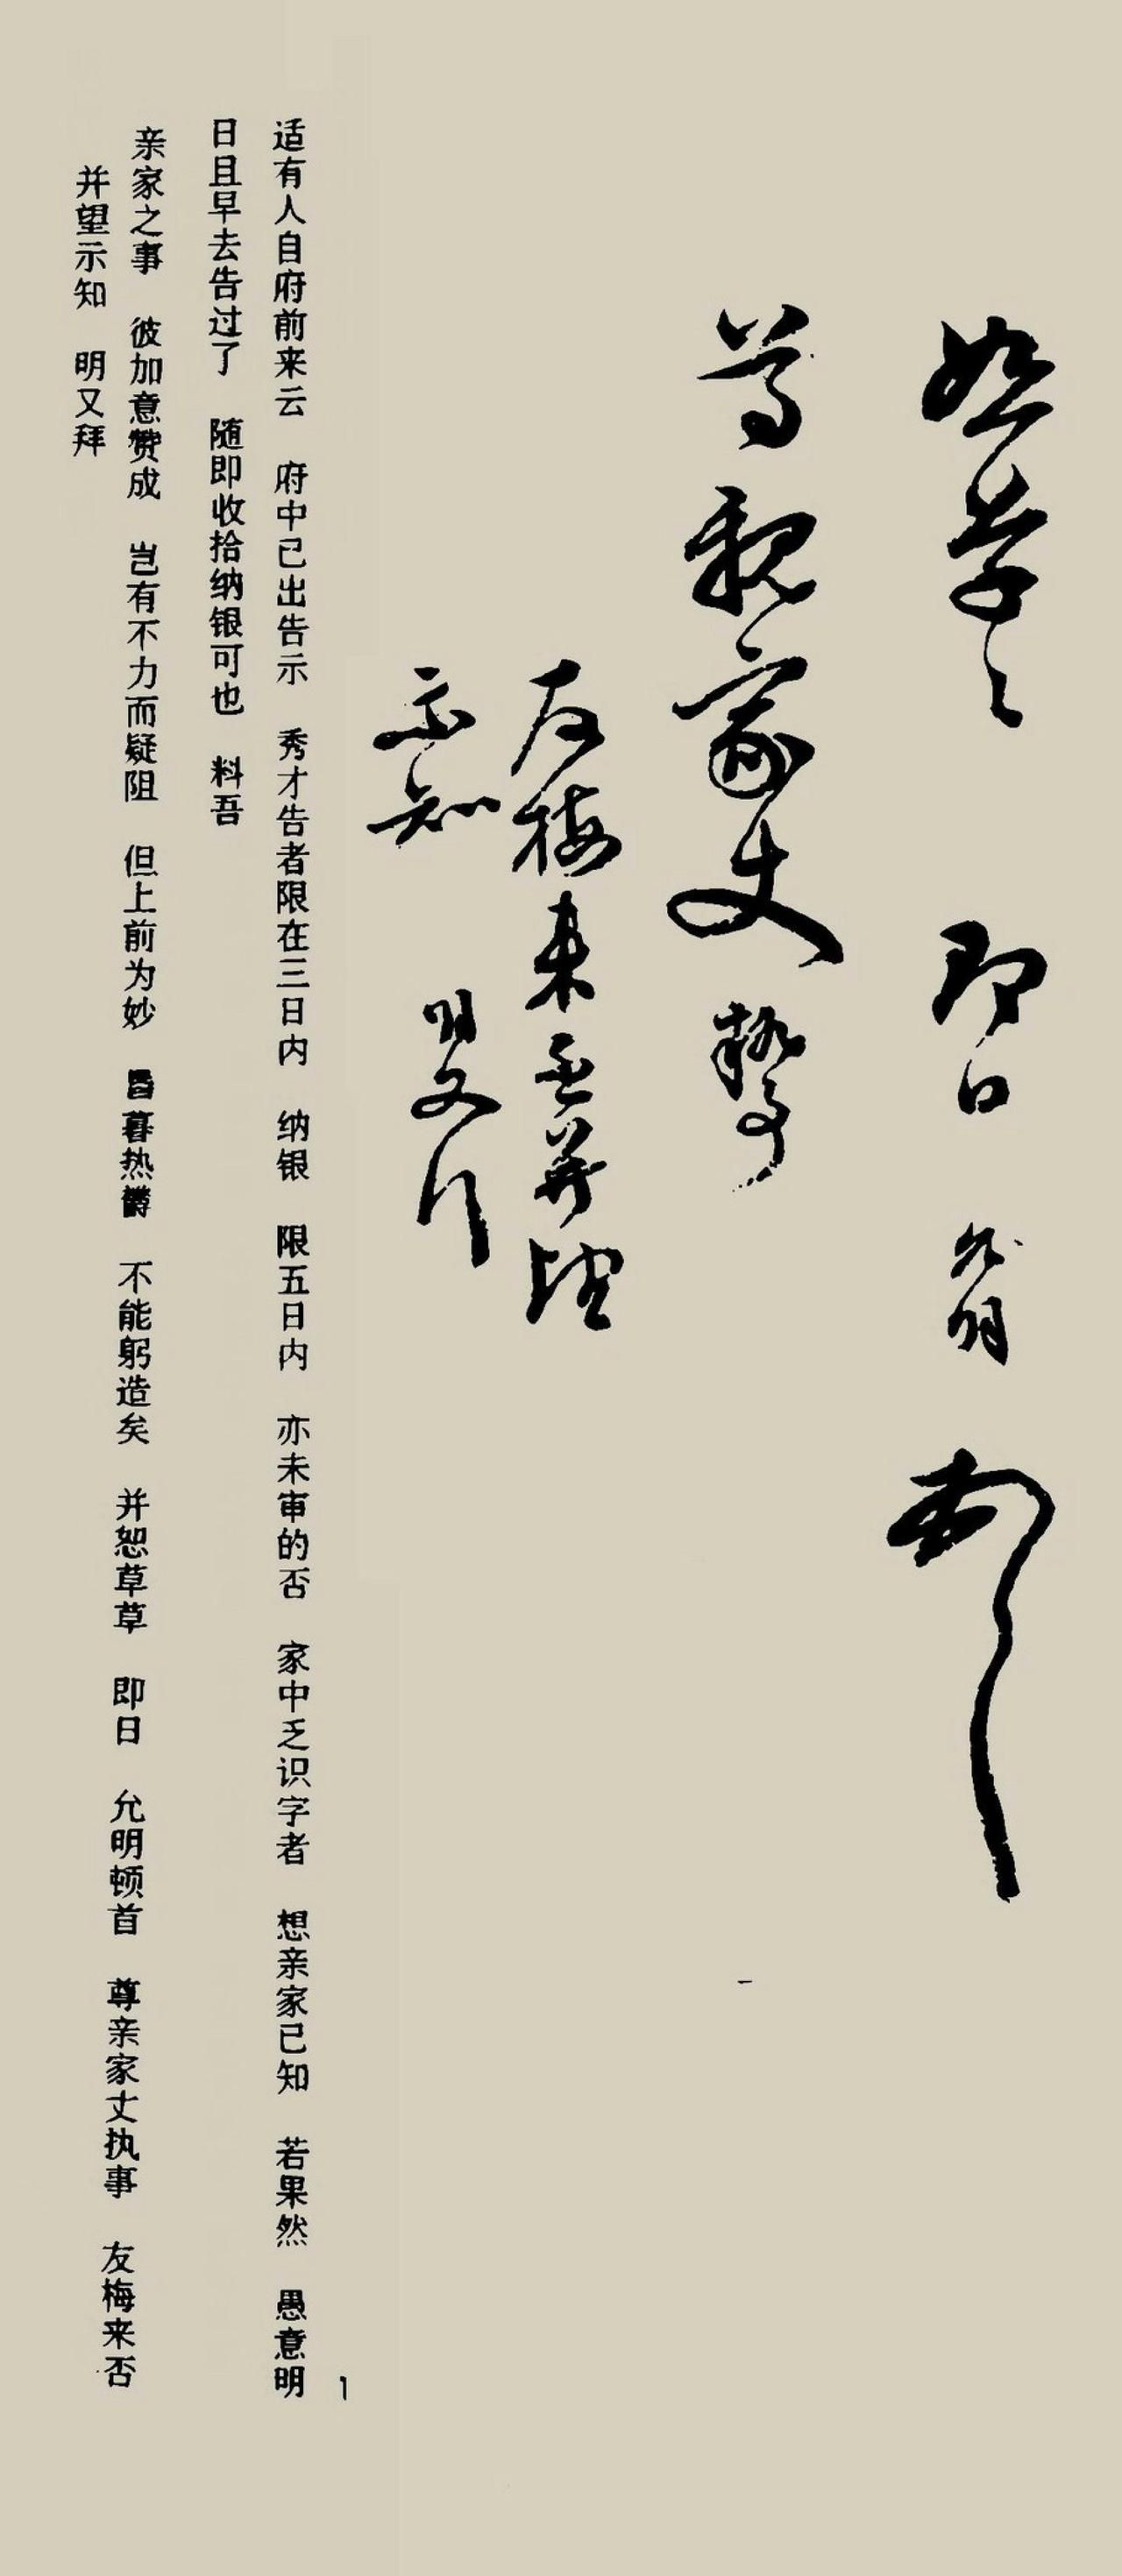 恕草々 即日 允明 頓首
尊親家丈 執事
友梅来否 并望
示知 明又拜
适有人自府前来云 府中已出告示 秀才告者限在三日内 纳银 限五日内 亦未审的否 家中乏识字者 想亲家已知 若果然 愚意明
日且早去告过了 随即收拾纳银可也 料吾
亲家之事 彼加意赞成 岂有不力而疑阻 但上前为妙 昏暮热欝 不能躬造矣 并恕草草 即日 允明顿首 尊亲家丈执事 友梅来否
并望示知 明又拜